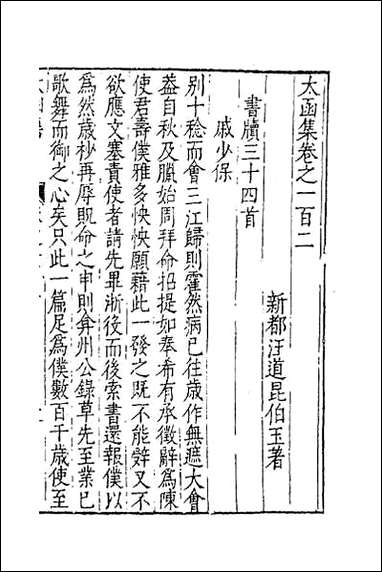 太函集卷之一百二
新都汪道昆伯玉著
書牘三十四首
戚少保
别十稔而會三江歸則霍然病已往歲作無遮大會
葢自秋及臘始周拜命招提如奉希有承徵辭爲陳
使君壽僕雅多怏怏願藉此一發之既不能辤又不
欲應文塞責使者請先畢浙役而後索書還報僕以
爲然歲杪再辱貺命之申則弇州公錄草先至業已
歌舞而御之心矣只此一篇足爲僕數百千歲使至